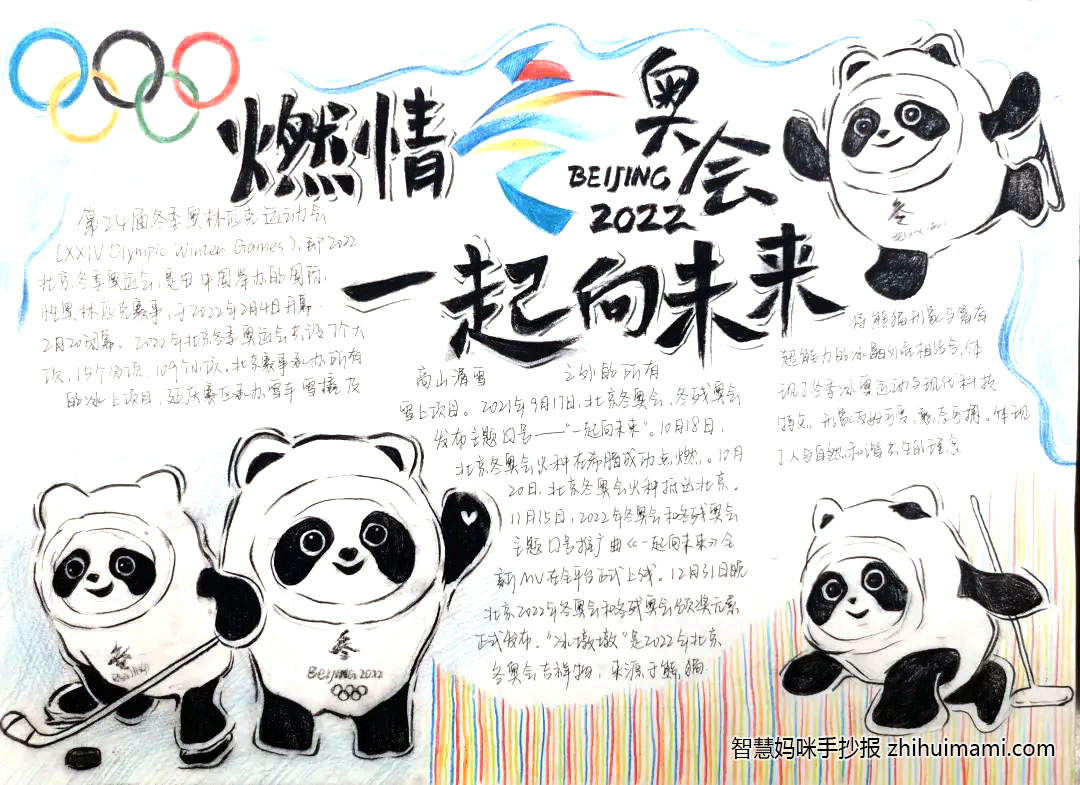 燃情
奥会
BEIJING
2022
一起向未来
第24届冬季奥林匹克运动会
(XXIV Olympic Winter Games),即2022
北京冬季奥运会,是由中国举办的国际
性奥林匹克赛事,于2022年2月4日开幕
2月20闭幕。2022年北京冬季奥运会共设7个大
项,15个分项,109个小项。北京赛事承办所有
的冰上项目,延庆赛区承办雪车雪橇及
高山滑雪
之外的所有
雪上项目。2021年9月17日,北京冬奥会、冬残奥会
发布主题口号——"一起向未来"。10月18日,
北京冬奥会火种在希腊成功点燃。10月
20日,北京冬奥会火种抵达北京。
11月15日,2022年冬奥会和冬残奥会
主题口号推广曲《一起向未来》全
新MV在全平台正式上线。12月31日晚
北京2022年冬奥会和冬残奥会颁奖元素
正式发布。"冰墩墩"是2022年北京
冬奥会吉祥物,来源于熊猫
将熊猫形象与富有
超能力的冰晶外壳相结合,体
现了冬季冰雪运动与现代科技
特点,形象友好可爱、憨态可掬。体现
了人与自然和谐共生的理念
冬
冬
BEIJING 2022
智慧妈咪手抄报 zhihuimami.com